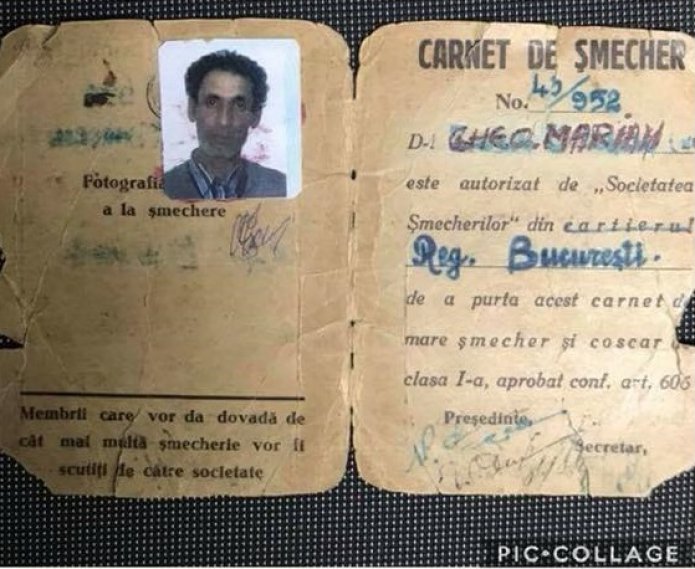 Fotografia
a la șmechere
Membrii care vor da dovadă de
cât mai multă șmecherie vor fi
scutiți de către societate
CARNET DE ȘMECHER
No. 43/952
D-l GHEO. MARIAN
este autorizat de „Societatea
Șmecherilor" din cartierul
Reg. București.
de a purta acest carnet de
mare șmecher și coscar de
clasa I-a, aprobat conf. art. 606
Președinte,
Secretar,
PIC•COLLAGE